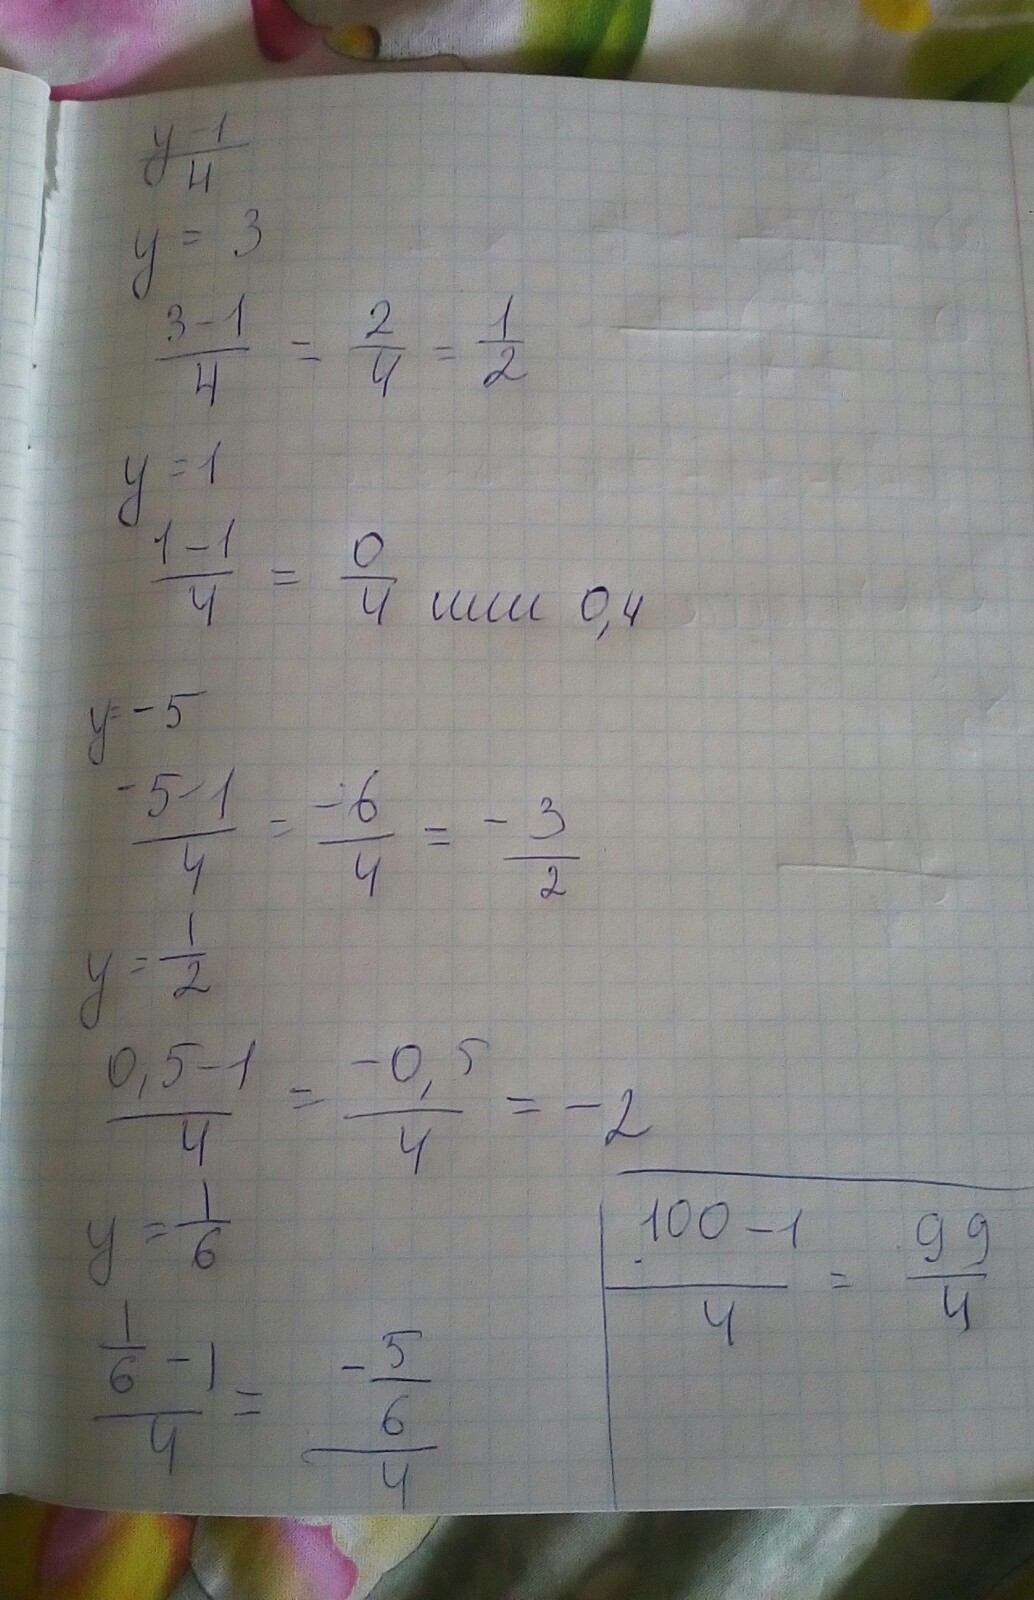 y-1/4
y = 3
3-1/4 = 2/4 = 1/2
y = 1
1-1/4 = 0/4 или 0,4
y = -5
-5-1/4 = -6/4 = -3/2
y = 1/2
0,5-1/4 = -0,5/4 = -2
y = 1/6
1/6 - 1/4 = -5/6/4
100-1/4 = 99/4